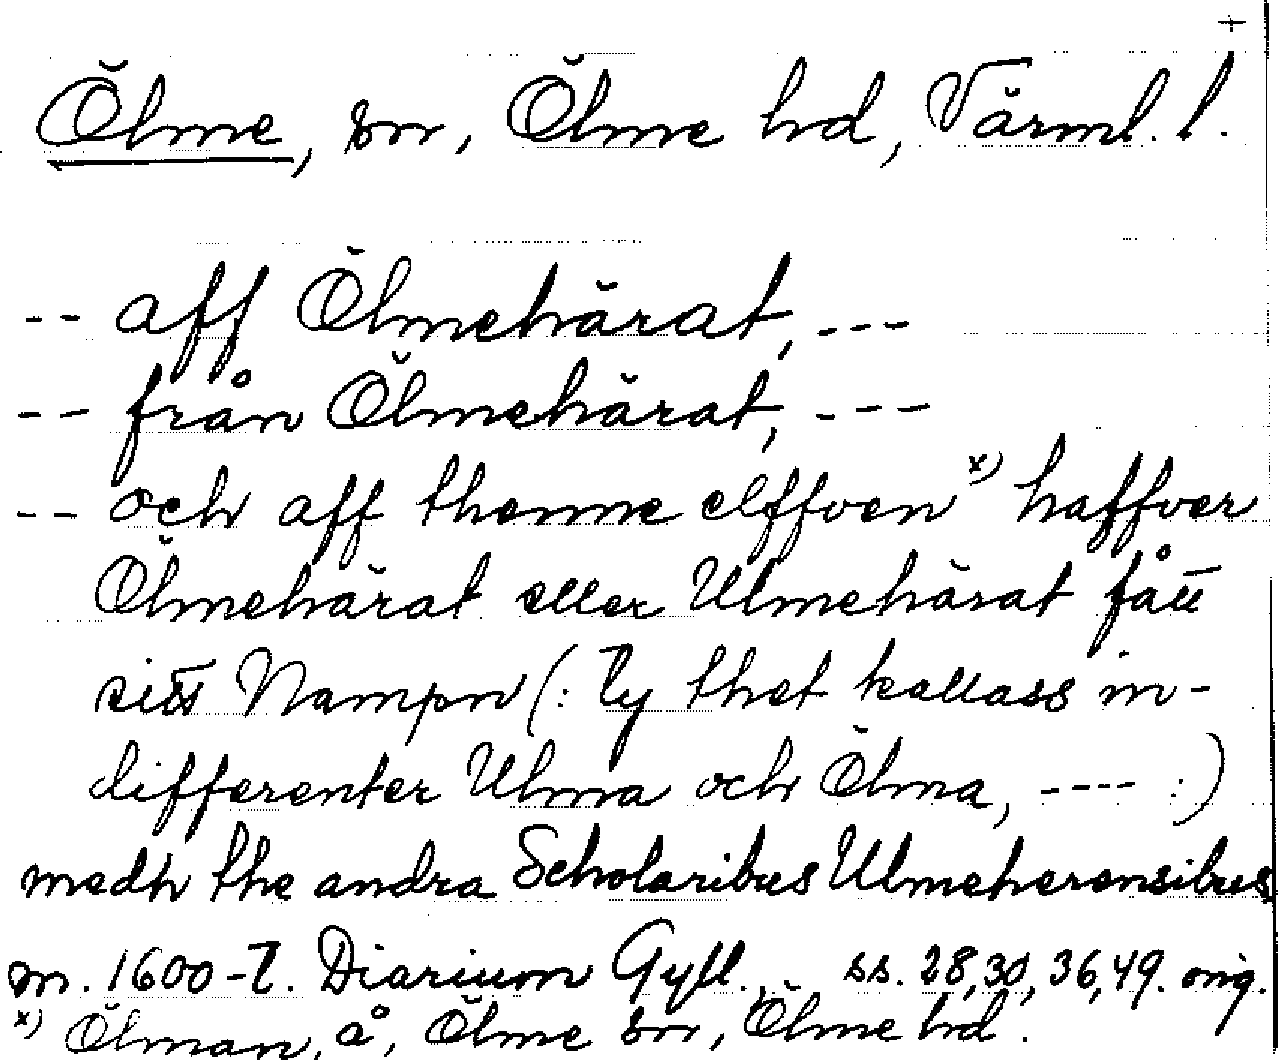 +
Ölme, sn, Ölme hd, Värml. l.
-- aff Ölmehärat, ---
-- från Ölmehärat, ---
-- och aff thenne elffven x) haffver
Ölmehärat eller Ulmehärat fått
sitt Nampn (: Ty thet kallass in-
differenter Ulma och Ölma, ---- :)
medh the andra Scholaribus Ulmeherensibus
m. 1600-t. Diarium Gyll., ss. 28, 30, 36, 49. orig.
x) Ölman, å, Ölme sn, Ölme hd.